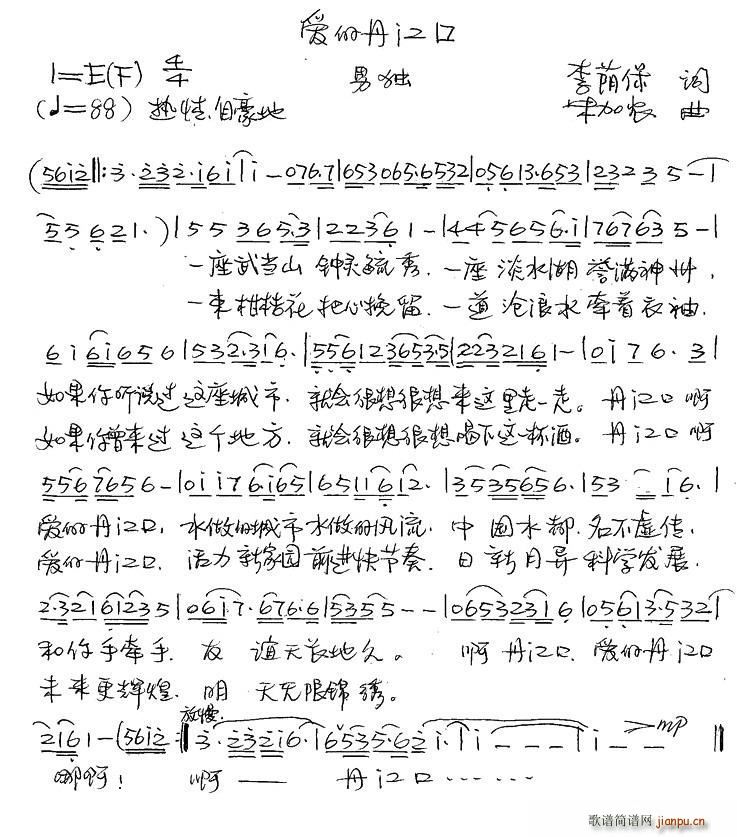 爱的丹江口
1=E(F) 4/4 男独 李荫保 词
(♩=88) 热情自豪地 加农 曲
(56i2‖:3·232·i6i|i-076·7|653065·6532|05613·653|23235-|
55621·)|553653·3|22361-|4456561·i|767635-|
一座武当山 钟灵毓秀. 一座 淡水湖 誉满神州,
一束柑桔花 把心挽留. 一道 沧浪水 牵着衣袖.
6i6i6656|532·316·|556123653·5|2232161-|0i76·3|
如果你听说过 这座城市. 就会很想很想来这里走一走。丹江口 啊
如果你曾来过 这个地方. 就会很想很想喝下这杯酒。丹江口 啊
5567656-|0ii76i65|6511612·|3535656·|53 i6·|
爱的丹江口, 水做的城市水做的风流. 中国水都.名不虚传.
爱的丹江口. 活力新家园前进快节奏. 日新月异 科学发展.
2·32161235|06i7·676·6|5355--|06532316|05613·532|
和你手牵手. 友 谊天长地久。 啊 丹江口. 爱的丹江口
未来更辉煌. 明 天无限锦绣。
放慢.
2161-(56i2:‖3·232i6·|6535·62i·|i---|i-- mp‖
哪啊! 啊—— 丹江口……
歌谱简谱网 jianpu.cn